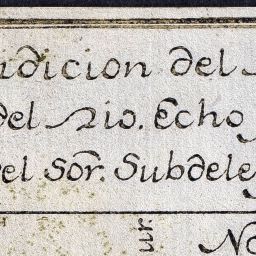 idicion del
del Rio. Echo
el Sor. Subdele
ur.
No